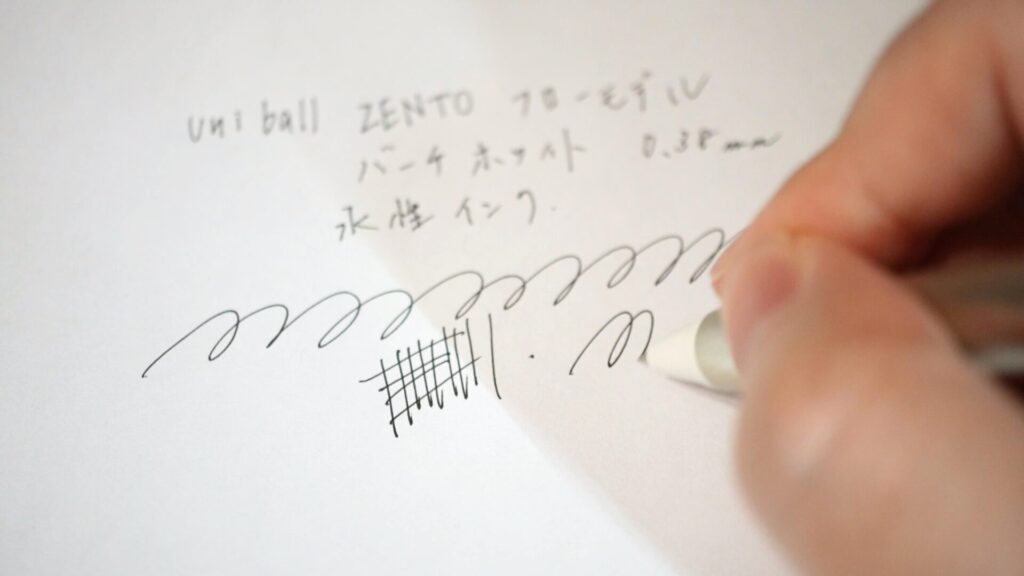 uni ball ZENTO フローモデル
バーチホワイト 0.38mm
水性インク.